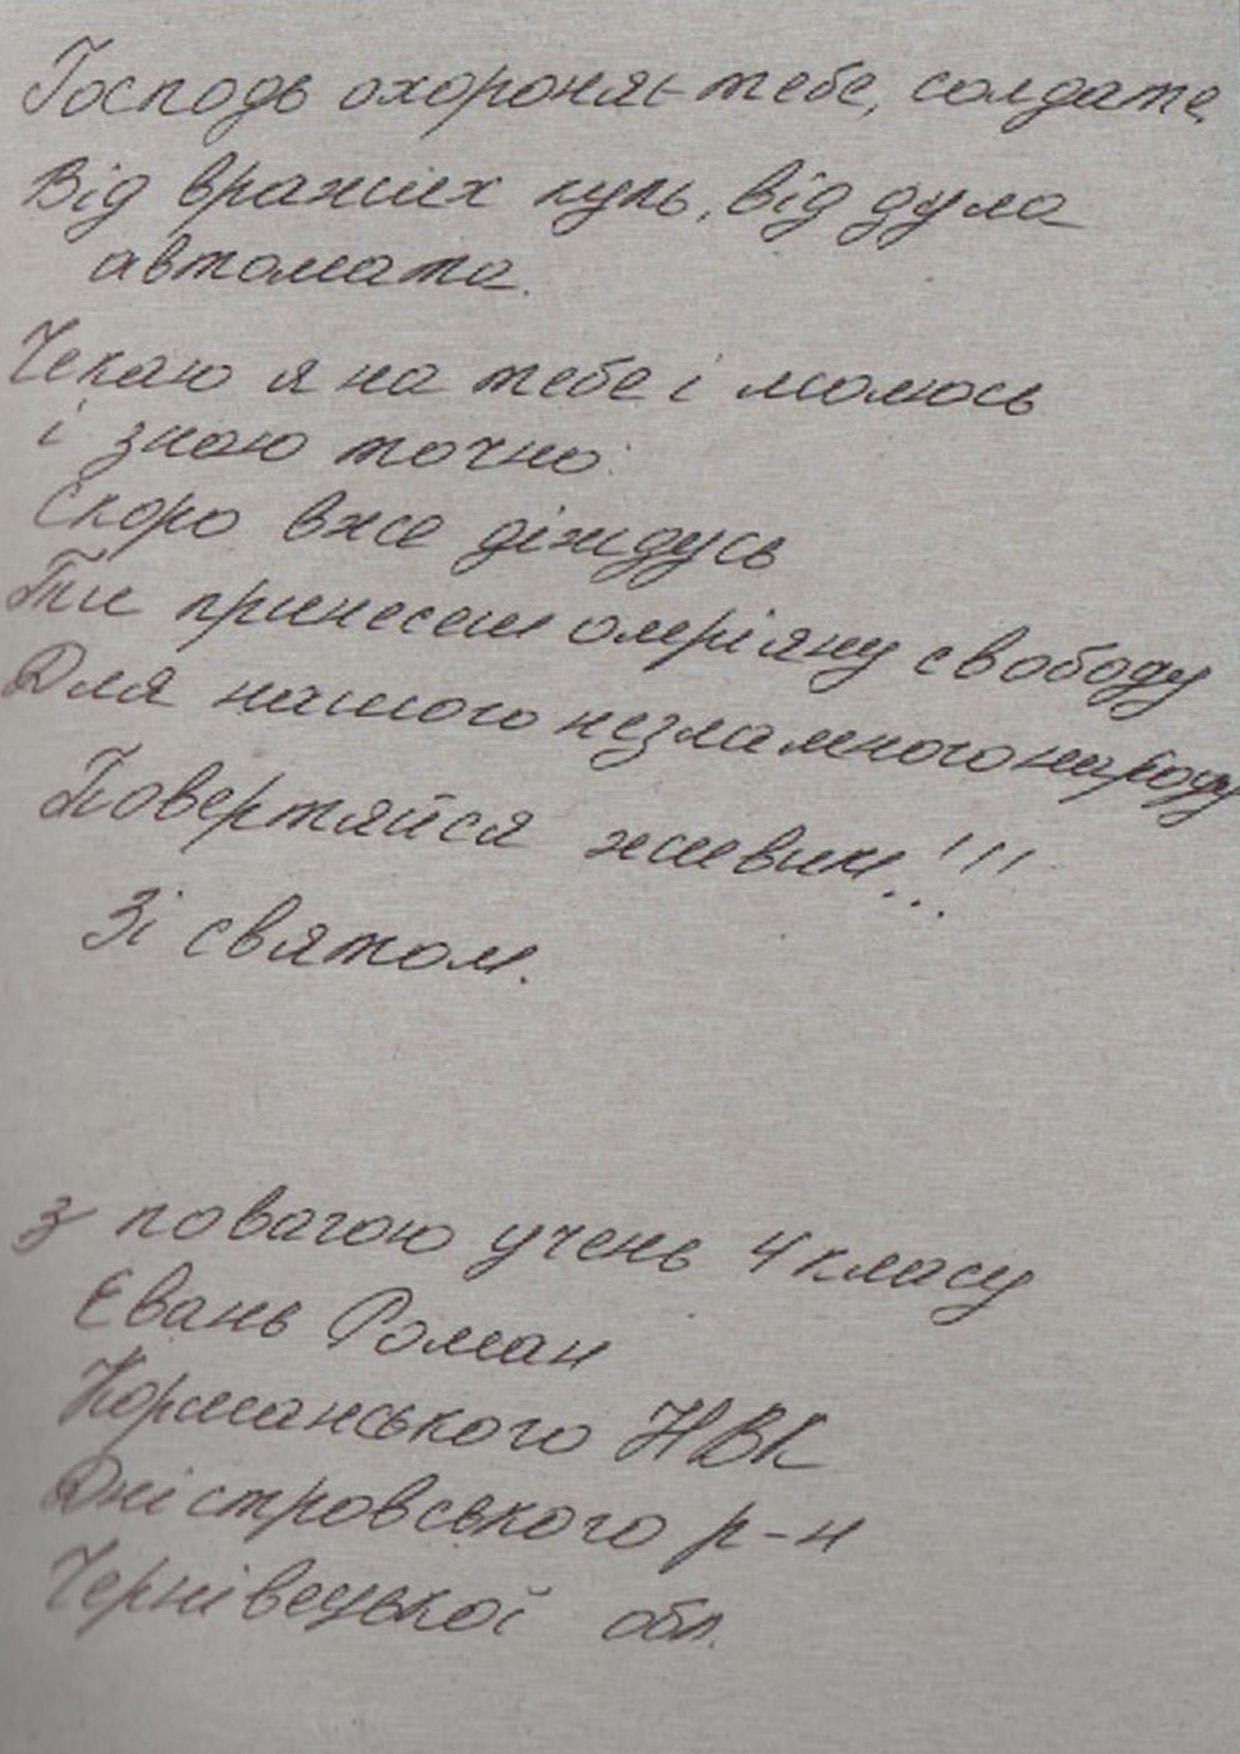 Господь охороняє тебе, солдате,
Від вражих куль, від дула
автомата.
Чекаю я на тебе і молюсь
і знаю точно:
Скоро вже діждусь
Ти принесеш омріяну свободу
Для нашого незламного народу
Повертяйся живим!!!
Зі святом.
з повагою учень 4 класу
Євань Роман
Корманського НВК
Дністровського р-н
Чернівецької обл.